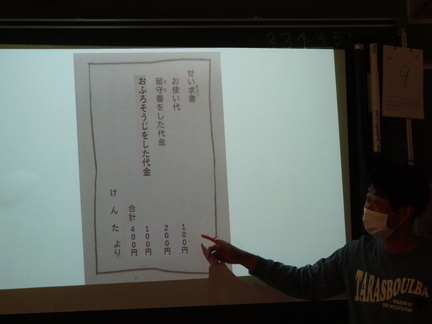 せい求書
お使い代 100円
留守番をした代金 200円
おふろそうじをした代金 100円
合計 400円
けんたより
9
TARASBOULBA